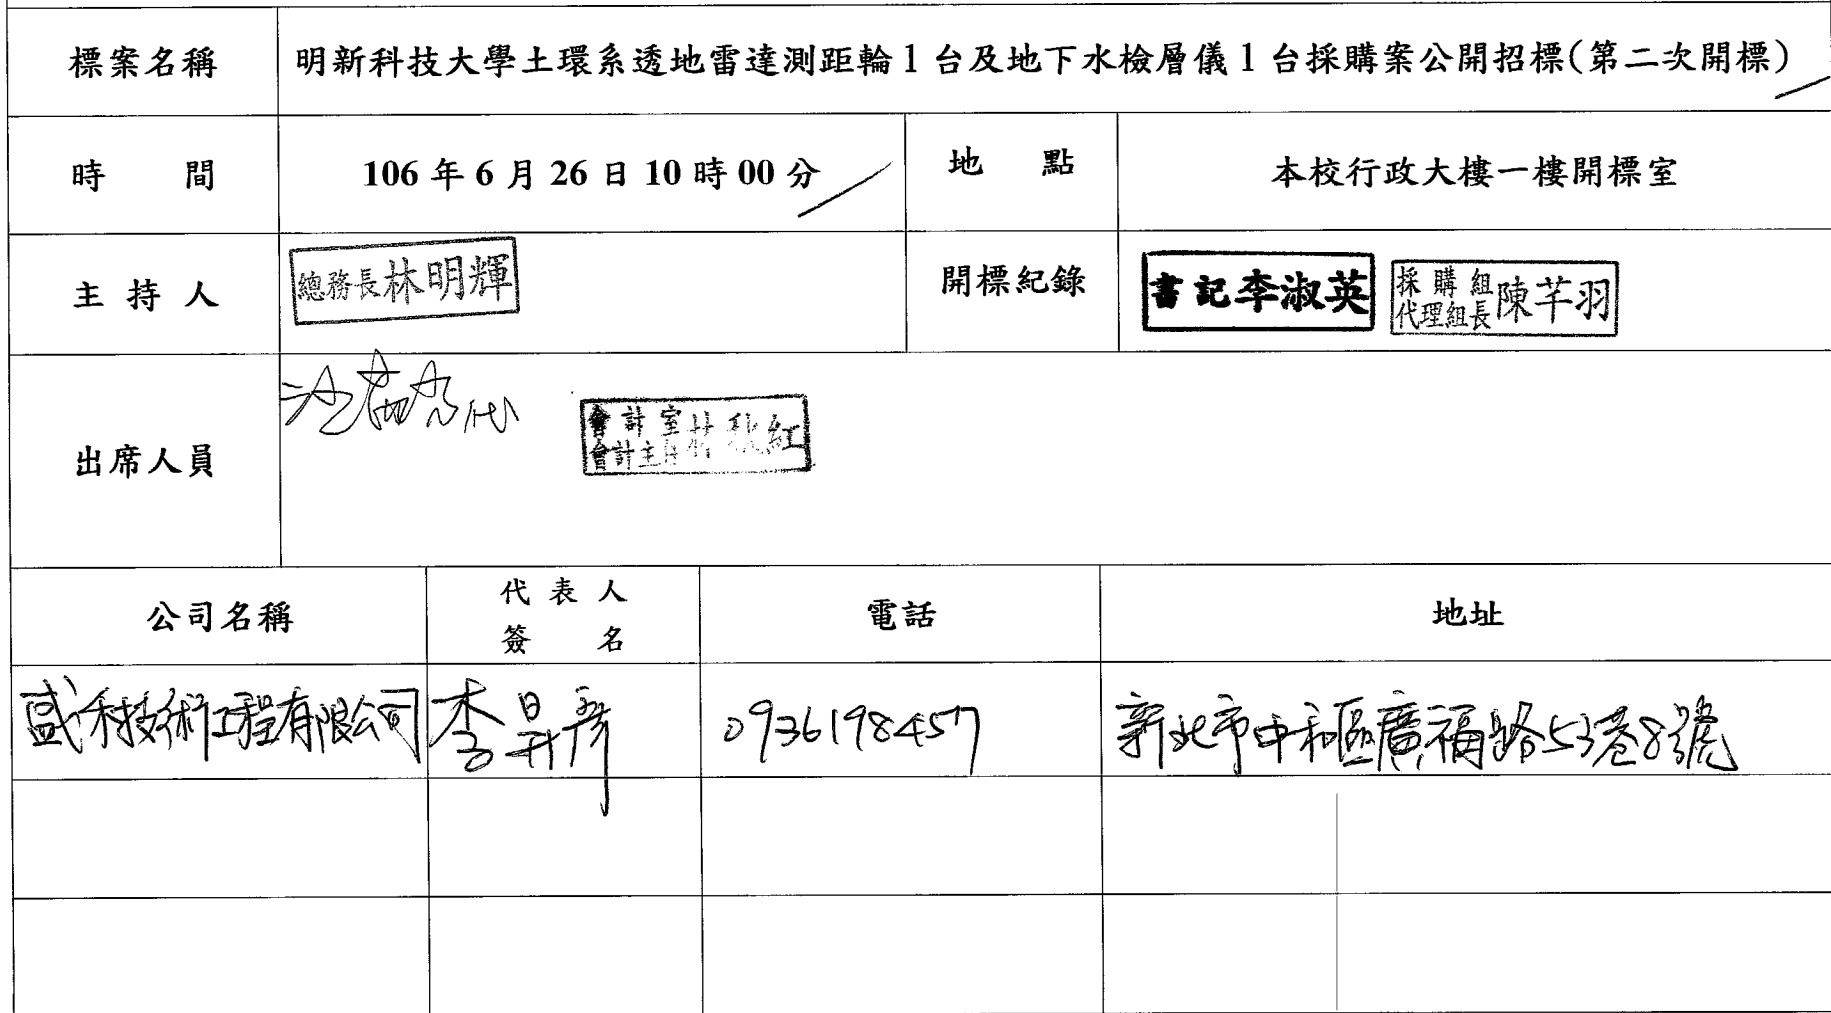 標案名稱 明新科技大學土環系透地雷達測距輪1台及地下水檢層儀1台採購案公開招標(第二次開標)
時 間 106年6月26日10時00分 地 點 本校行政大樓一樓開標室
主持人 總務長林明輝 開標紀錄 書記李淑英 採購組代理組長陳芊羽
出席人員 會計室會計主任 秋紅
公司名稱 代表人簽名 電話 地址
盛禾技術工程有限公司 李昇彥 0936198457 新北市中和區廣福路53巷8號